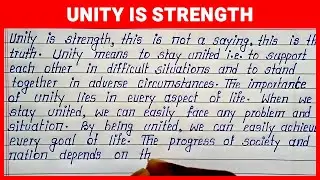 UNITY IS STRENGTH
Unity is strength, this is not a saying, this is th
truth. Unity means to stay united i.e. to support
each other in difficult situations and to stand
together in adverse circumstances. The importance
of unity lies in every aspect of life. When we
stay united, we can easily face any problem and
situation. By being united, we can easily achieve
every goal of life. The progress of society and
nation depends on th